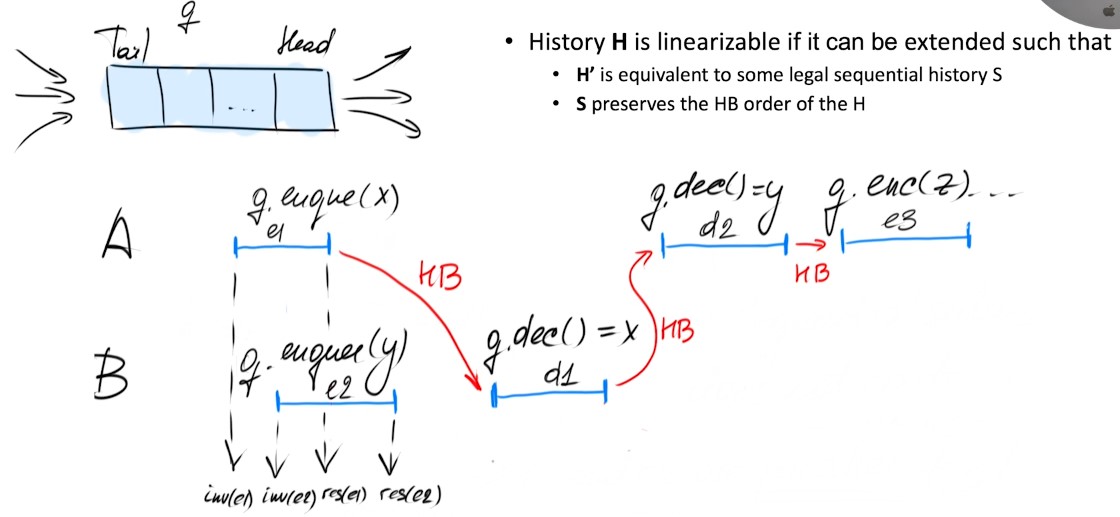 q
Tail Head
• History H is linearizable if it can be extended such that
• H’ is equivalent to some legal sequential history S
• S preserves the HB order of the H
A
q.enque(x)
e1
HB
q.deq()=y
d2
HB
q.enc(z)...
e3
B
q.enquee(y)
e2
q.deq()=x
d1
HB
inv(e1) inv(e2) res(e1) res(e2)
...